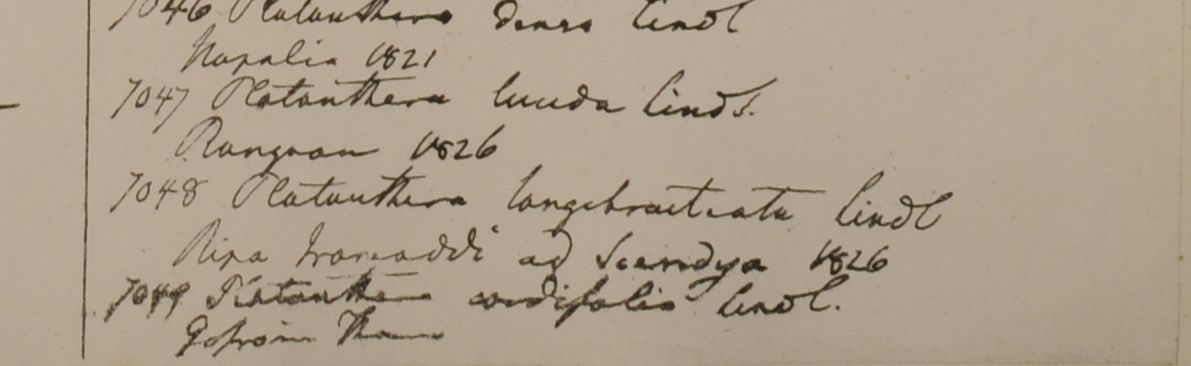 7046 Platanthera densa Lindl
Napalia 1821
7047 Platanthera lucida Lindl.
Rangoon 1826
7048 Platanthera longebracteata Lindl
Ripa Irawaddi ad Seendya 1826
7049 Platanthera cordifolia Lindl.